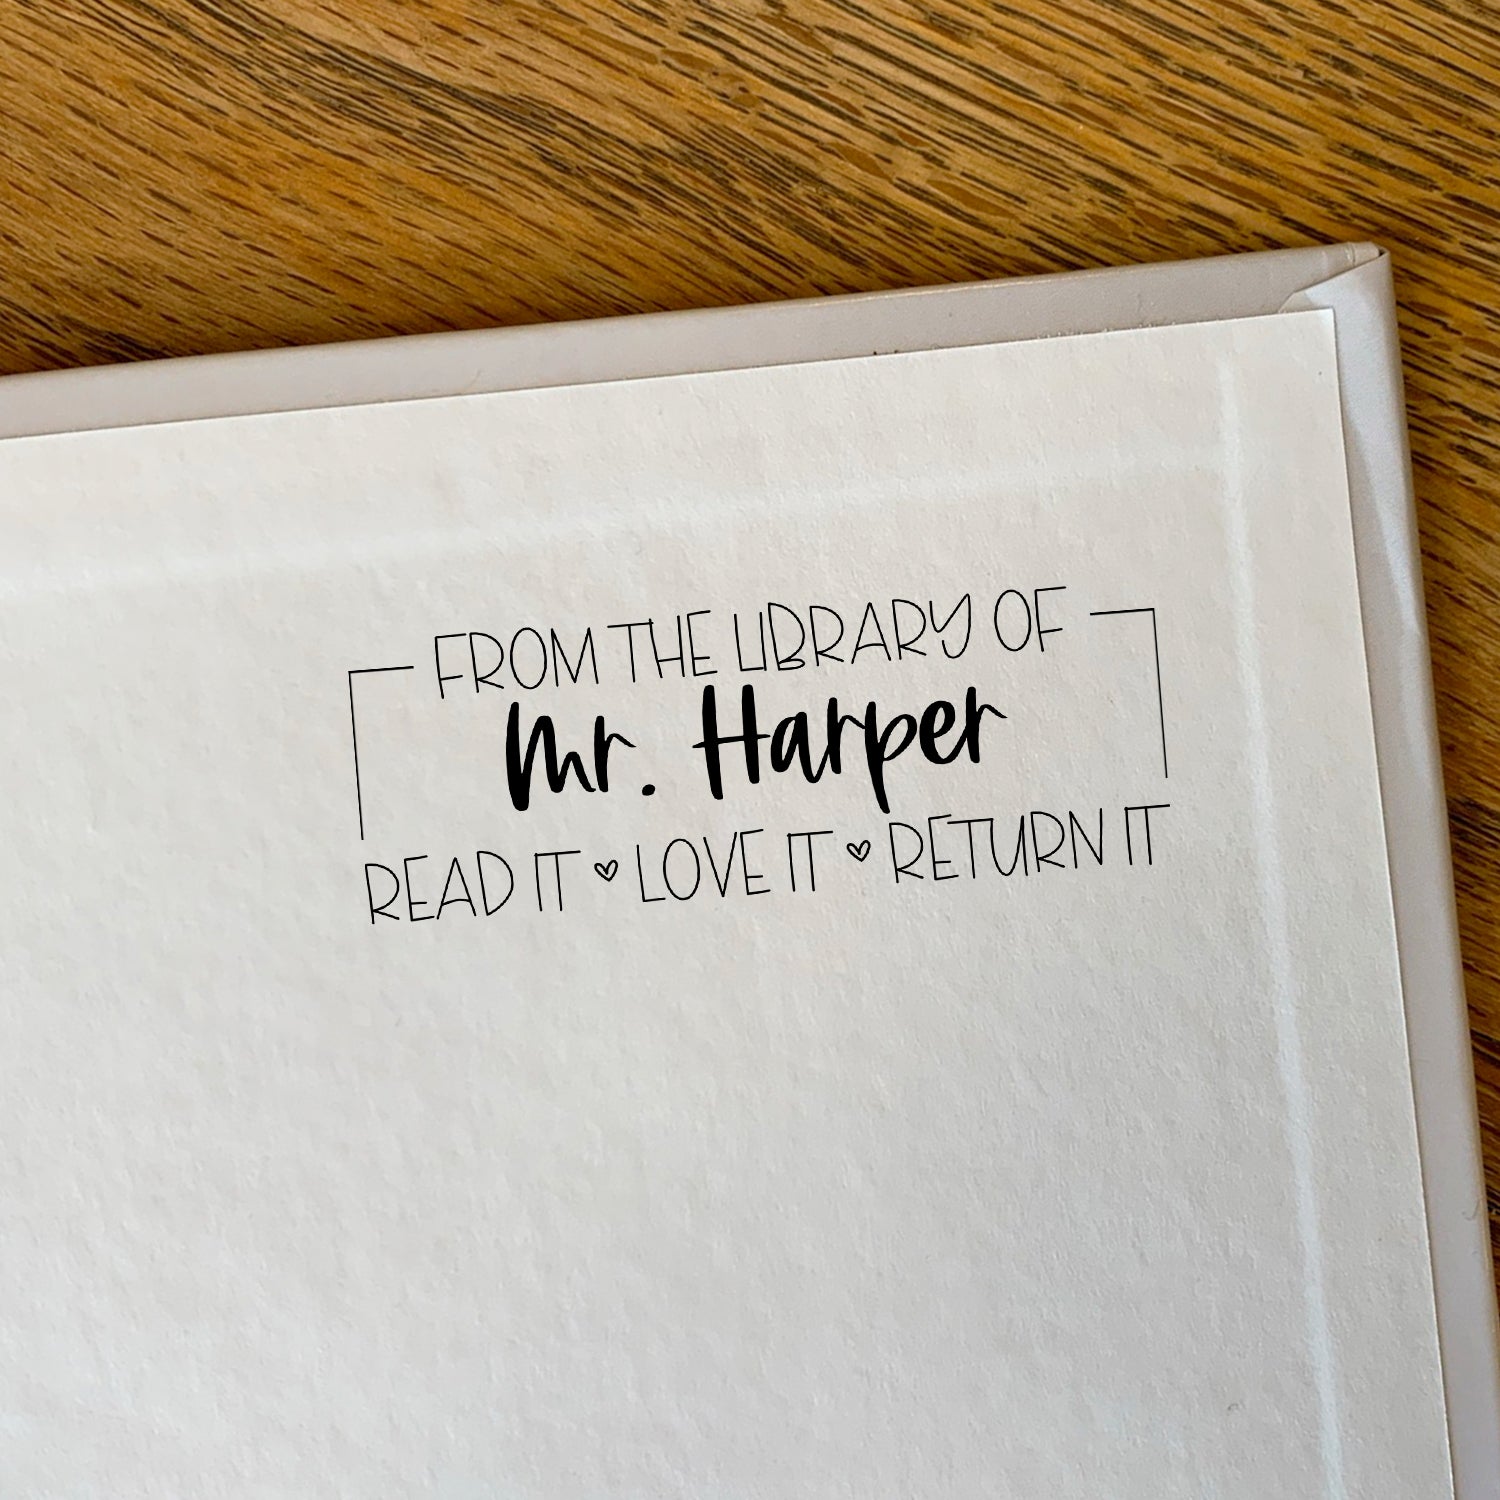 FROM THE LIBRARY OF
Mr. Harper
READ IT ♡ LOVE IT ♡ RETURN IT